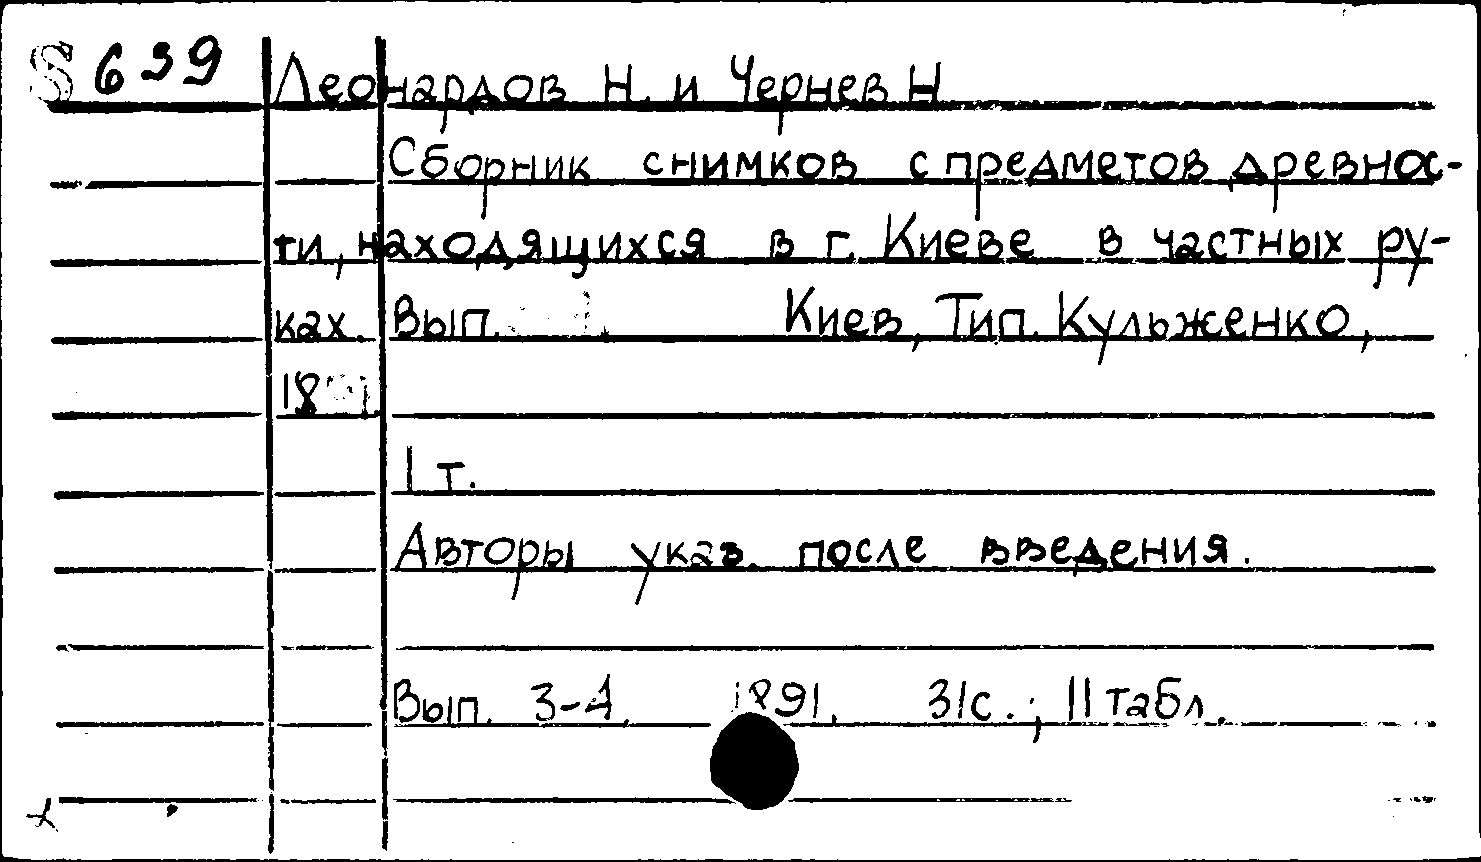 S 639
Леонардов Н. и Чернев Н
Сборник снимков с предметов древнос-
ти, находящихся в г. Киеве в частных ру-
ках. Вып. Киев, Тип. Кульженко,
18
1 т.
Авторы указ. после введения.
Вып. 3-4. 1891. 31с.; 11 табл.